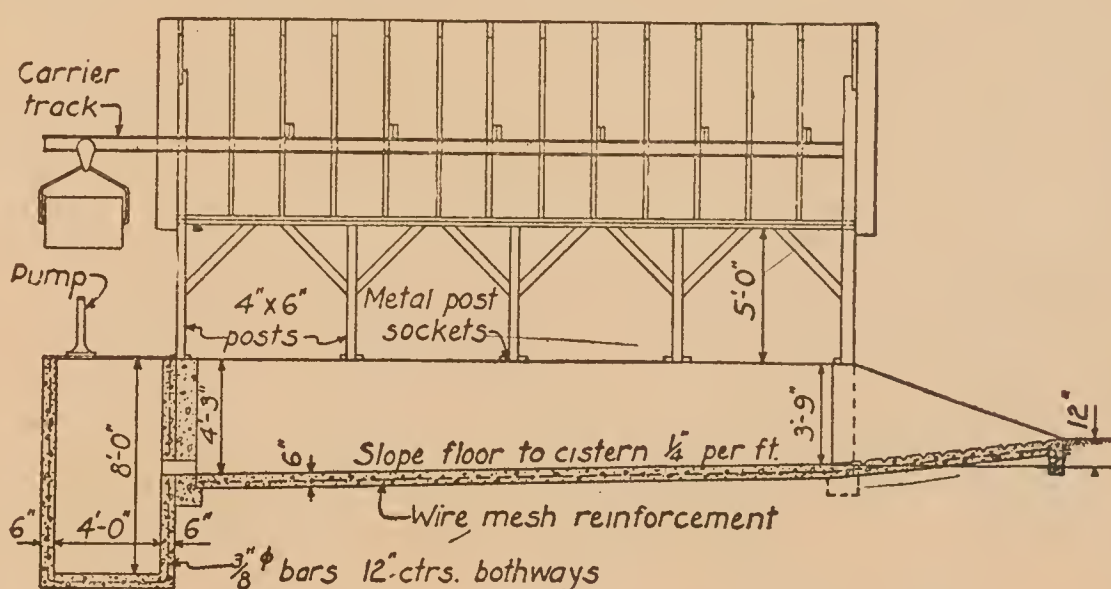 Carrier
track
Pump
4"x6"
posts
Metal post
sockets
5'-0"
4'-3"
3'-9"
12"
8'-0"
6"
Slope floor to cistern ¼" per ft.
6"
4'-0"
6"
Wire mesh reinforcement
⅜"ϕ bars 12"ctrs. bothways